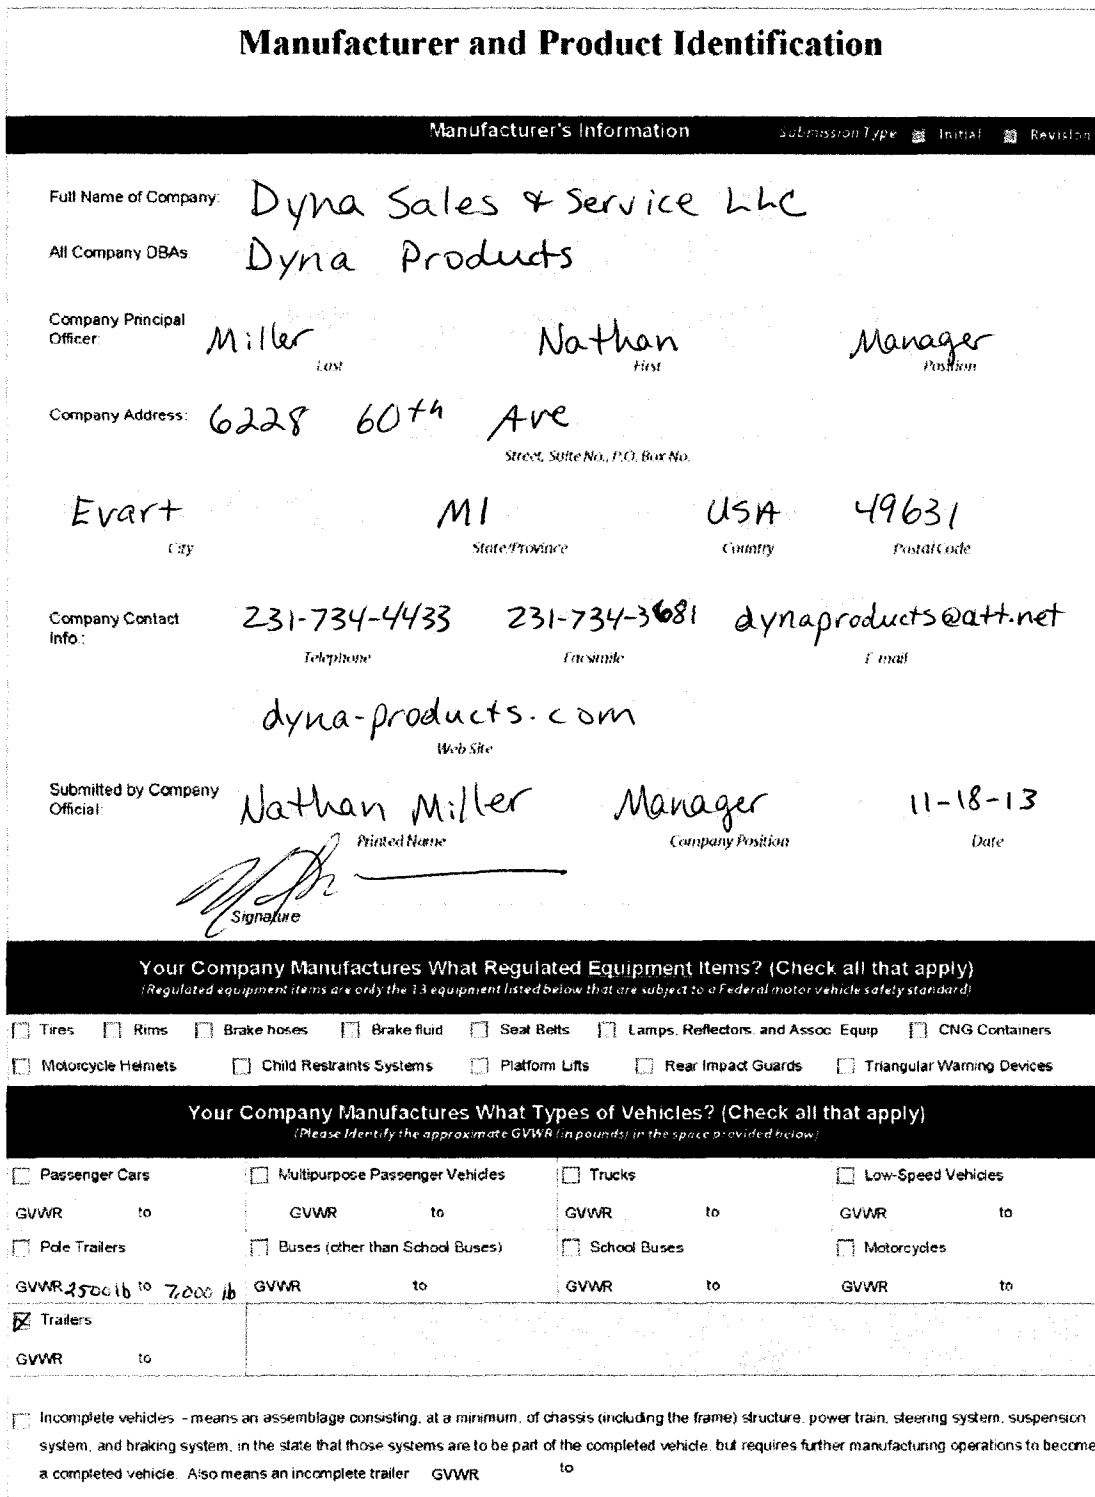 Manufacturer and Product Identification
Manufacturer's Information Submission Type Initial Revision
Full Name of Company: Dyna Sales & Service LLC
All Company DBAs Dyna Products
Company Principal
Officer: Miller Nathan Manager
Last First Position
Company Address: 6228 60th Ave
Street, Suite No., P.O. Box No.
Evart MI USA 49631
City State/Province Country Postal Code
Company Contact
Info.: 231-734-4433 231-734-3681 dynaproducts@att.net
Telephone Facsimile E-mail
dyna-products.com
Web Site
Submitted by Company
Official: Nathan Miller Manager 11-18-13
Printed Name Company Position Date
Signature
Your Company Manufactures What Regulated Equipment Items? (Check all that apply)
(Regulated equipment items are only the 13 equipment listed below that are subject to a Federal motor vehicle safety standard)
Tires Rims Brake hoses Brake fluid Seat Belts Lamps, Reflectors, and Assoc Equip CNG Containers
Motorcycle Helmets Child Restraints Systems Platform Lifts Rear Impact Guards Triangular Warning Devices
Your Company Manufactures What Types of Vehicles? (Check all that apply)
(Please Identify the approximate GVWR (in pounds) in the space provided below)
Passenger Cars Multipurpose Passenger Vehicles Trucks Low-Speed Vehicles
GVWR to GVWR to GVWR to GVWR to
Pole Trailers Buses (other than School Buses) School Buses Motorcycles
GVWR 2500 lb to 7,000 lb GVWR to GVWR to GVWR to
Trailers
GVWR to
Incomplete vehicles - means an assemblage consisting, at a minimum, of chassis (including the frame) structure, power train, steering system, suspension
system, and braking system, in the state that those systems are to be part of the completed vehicle, but requires further manufacturing operations to become
a completed vehicle. Also means an incomplete trailer GVWR to